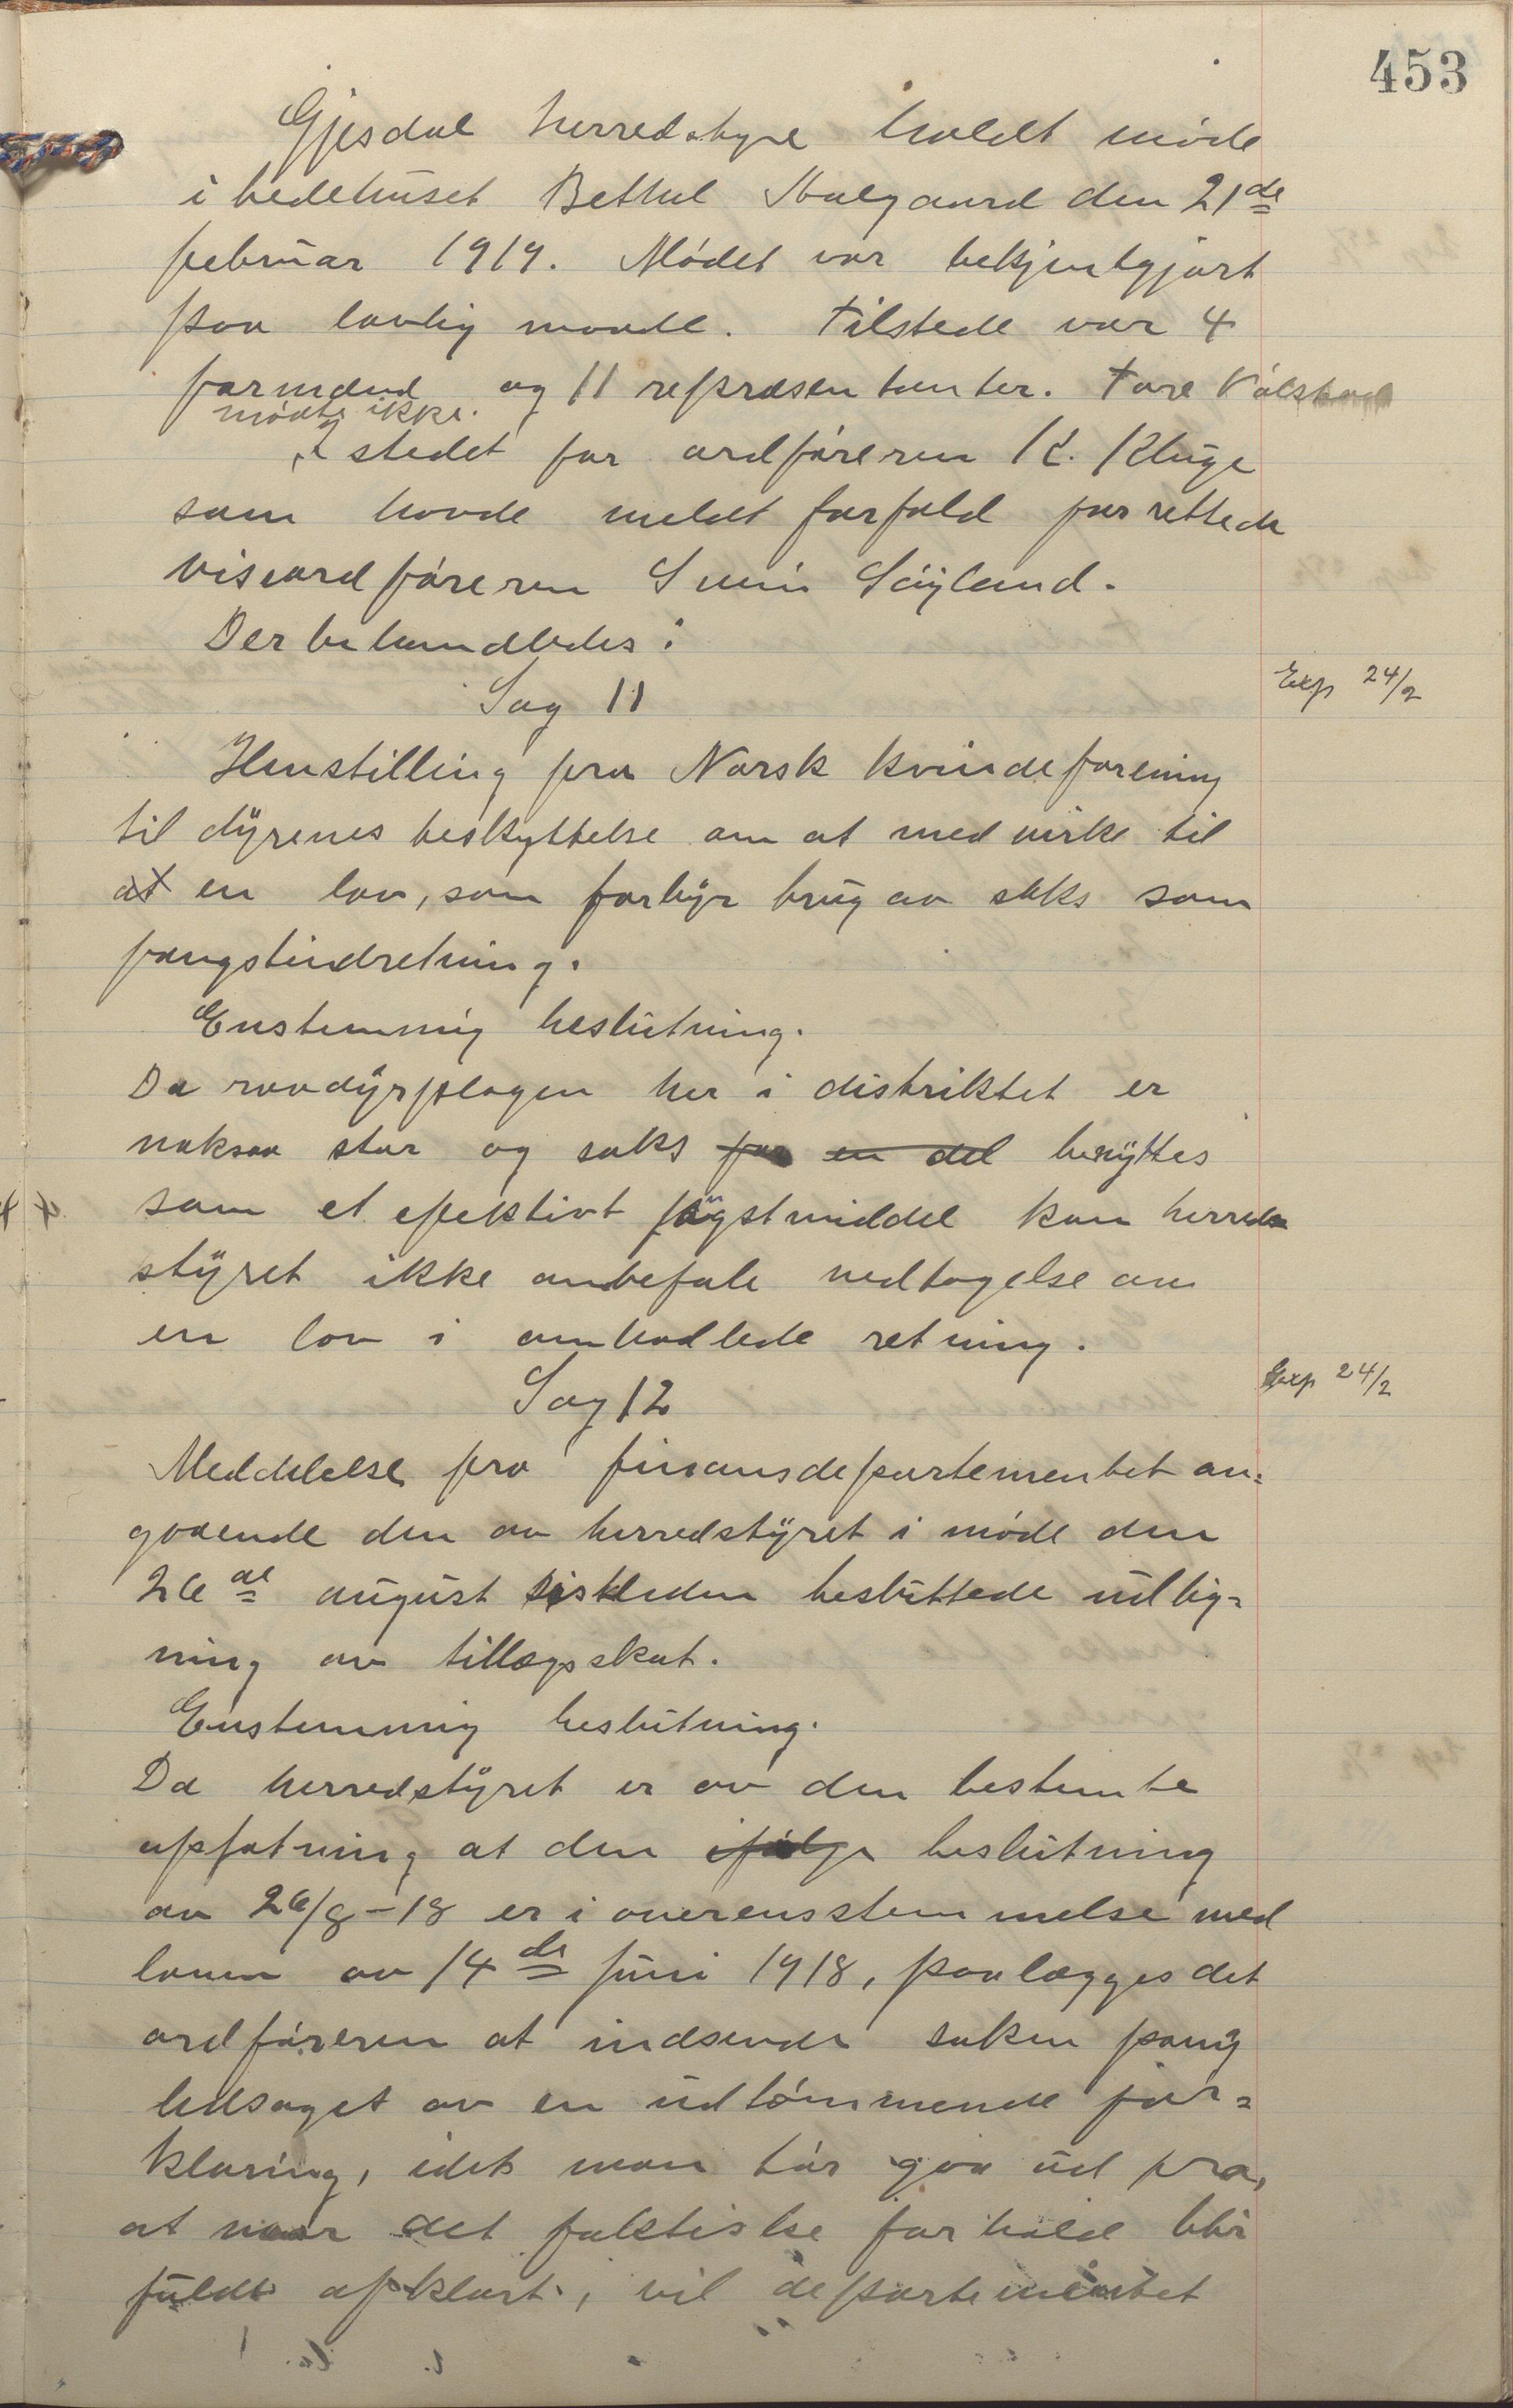 453
Gjesdal herredstyre holdt møde
i bedehuset Bethel Aalgaard den 21de
februar 1919. Mødet var bekjentgjort
paa lovlig maade. Tilstede var 4
formænd og 11 repræsentanter. Tore
mødte ikke.
I stedet for ordføreren K. Kluge
som havde meldt forfald forrettede
viseordføreren Svein Søyland.
Der behandledes:
Sag 11
Exp 24/2
Henstilling fra Norsk kvindeforening
til dyrenes beskyttelse om at medvirke til
at en lov, som forbyr brug av saks som
fangstindretning.
Enstemmig beslutning.
Da rovdyrplagen her i distriktet er
noksaa stor og saks for en del benyttes
som et efektivt middel kan herreds
styret ikke anbefale vedtagelse av
en lov i omhodlede retning.
Sag 12
Exp 24/2
Meddelelse fra finansdepartementet an=
gaaende den av herredstyret i møde den
26de august sistleden besluttede utlig=
ning av tillægsskat.
Enstemmig beslutning.
Da herredstyret er av den bestemte
opfatning at den ifølge beslutning
av 26/8-18 er i overensstemmelse med
loven av 14de juni 1918, paalægges det
ordføreren at indsende saken paany
ledsaget av en udtømmende for=
klaring, idet man tør gaa ud fra,
at naar det faktiske forhold blir
fuldt opklart, vil departementet